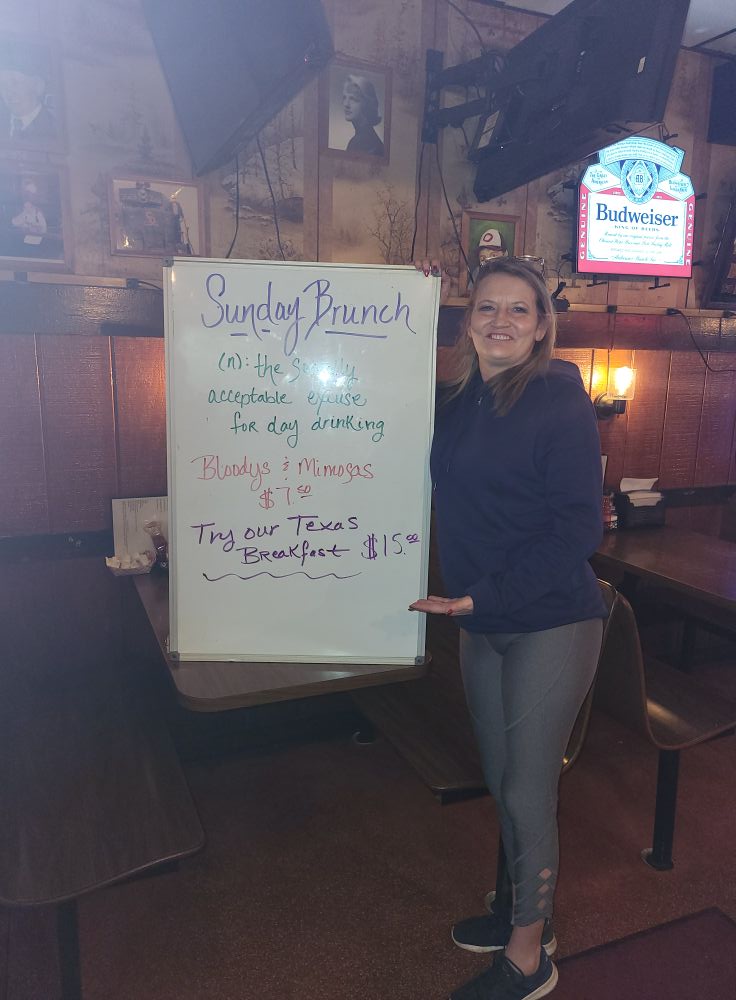 Sunday Brunch
(n): the socially
acceptable excuse
for day drinking
Bloodys & Mimosas
$7.50
Try our Texas
Breakfast $15.00
GENUINE
Budweiser
KING OF BEERS
GENUINE